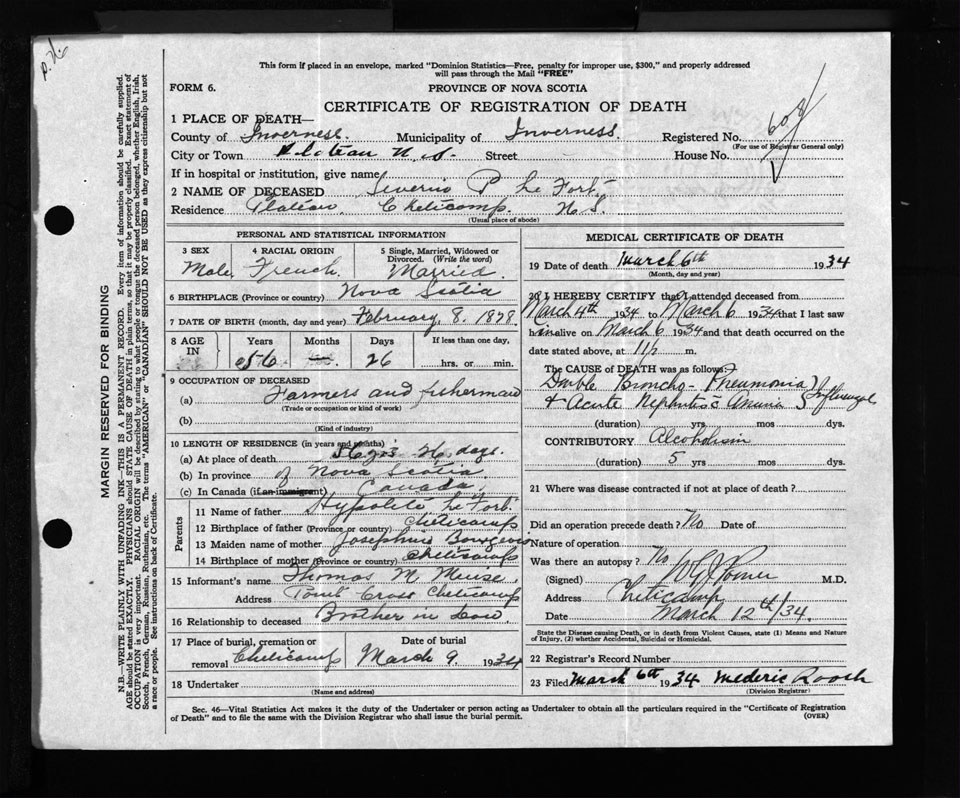 This form if placed in an envelope, marked "Dominion Statistics—Free, penalty for improper use, $300," and properly addressed
will pass through the Mail "FREE"
FORM 6.
PROVINCE OF NOVA SCOTIA
CERTIFICATE OF REGISTRATION OF DEATH
1 PLACE OF DEATH—
County of Inverness. Municipality of Inverness. Registered No. 608
(For use of Registrar General only)
City or Town Plateau N.S. Street House No.
If in hospital or institution, give name
2 NAME OF DECEASED Severin P Le Fort
Residence Plateau, Cheticamp. N S.
(Usual place of abode)
PERSONAL AND STATISTICAL INFORMATION
3 SEX 4 RACIAL ORIGIN 5 Single, Married, Widowed or
Divorced. (Write the word)
Male, French. Married.
6 BIRTHPLACE (Province or country) Nova Scotia
7 DATE OF BIRTH (month, day and year) February, 8. 1878
8 AGE IN Years Months Days If less than one day,
56 26 hrs. or min.
9 OCCUPATION OF DECEASED
(a) Farmers and fisherman
(Trade or occupation or kind of work)
(b)
(Kind of industry)
10 LENGTH OF RESIDENCE (in years and months)
(a) At place of death 56 yrs 26 days.
(b) In province of Nova Scotia
(c) In Canada (if an immigrant) Canada,
Parents
11 Name of father Hypolite Le Fort
12 Birthplace of father (Province or country) Cheticamp
13 Maiden name of mother Josephine Bourgeois
14 Birthplace of mother (Province or country) Cheticamp
15 Informant's name Thomas M Muise,
Address Cross Cheticamp
16 Relationship to deceased Brother in Law
17 Place of burial, cremation or Date of burial
removal Cheticamp March 9. 1934
18 Undertaker
(Name and address)
MEDICAL CERTIFICATE OF DEATH
19 Date of death March 6th 1934
(Month, day and year)
20 I HEREBY CERTIFY that I attended deceased from
March 4th 1934 to March 6 1934 that I last saw
him alive on March 6 1934 and that death occurred on the
date stated above, at 11 p m.
The CAUSE OF DEATH was as follows:
Double Broncho-Pneumonia Influenzal
& Acute Nephritis c Anuria
(duration) yrs mos dys.
CONTRIBUTORY Alcoholism
(duration) 5 yrs mos dys.
21 Where was disease contracted if not at place of death?
Did an operation precede death? No Date of
Nature of operation
Was there an autopsy? No
(Signed) M.D.
Address Cheticamp
Date March 12th/34.
State the Disease causing Death, or in death from Violent Causes, state (1) Means and Nature
of Injury, (2) whether Accidental, Suicidal or Homicidal.
22 Registrar's Record Number
23 Filed March 6th 1934 Mederic Roach
(Division Registrar)
Sec. 46—Vital Statistics Act makes it the duty of the Undertaker or person acting as Undertaker to obtain all the particulars required in the "Certificate of Registration
of Death" and to file the same with the Division Registrar who shall issue the burial permit.
(OVER)
MARGIN RESERVED FOR BINDING
N.B.—WRITE PLAINLY WITH UNFADING INK—THIS IS A PERMANENT RECORD. Every item of information should be carefully supplied.
AGE should be stated EXACTLY. PHYSICIANS should STATE CAUSE OF DEATH in plain terms, so that it may be properly classified. Exact statement of
OCCUPATION is very important. RACIAL ORIGIN will be described by stating to what people or tongue the deceased person belonged, whether English, Irish,
Scotch, French, German, Russian, Ruthenian, etc. The terms "AMERICAN" or "CANADIAN" SHOULD NOT BE USED as they express citizenship but not
a race or people. See instructions on back of Certificate.